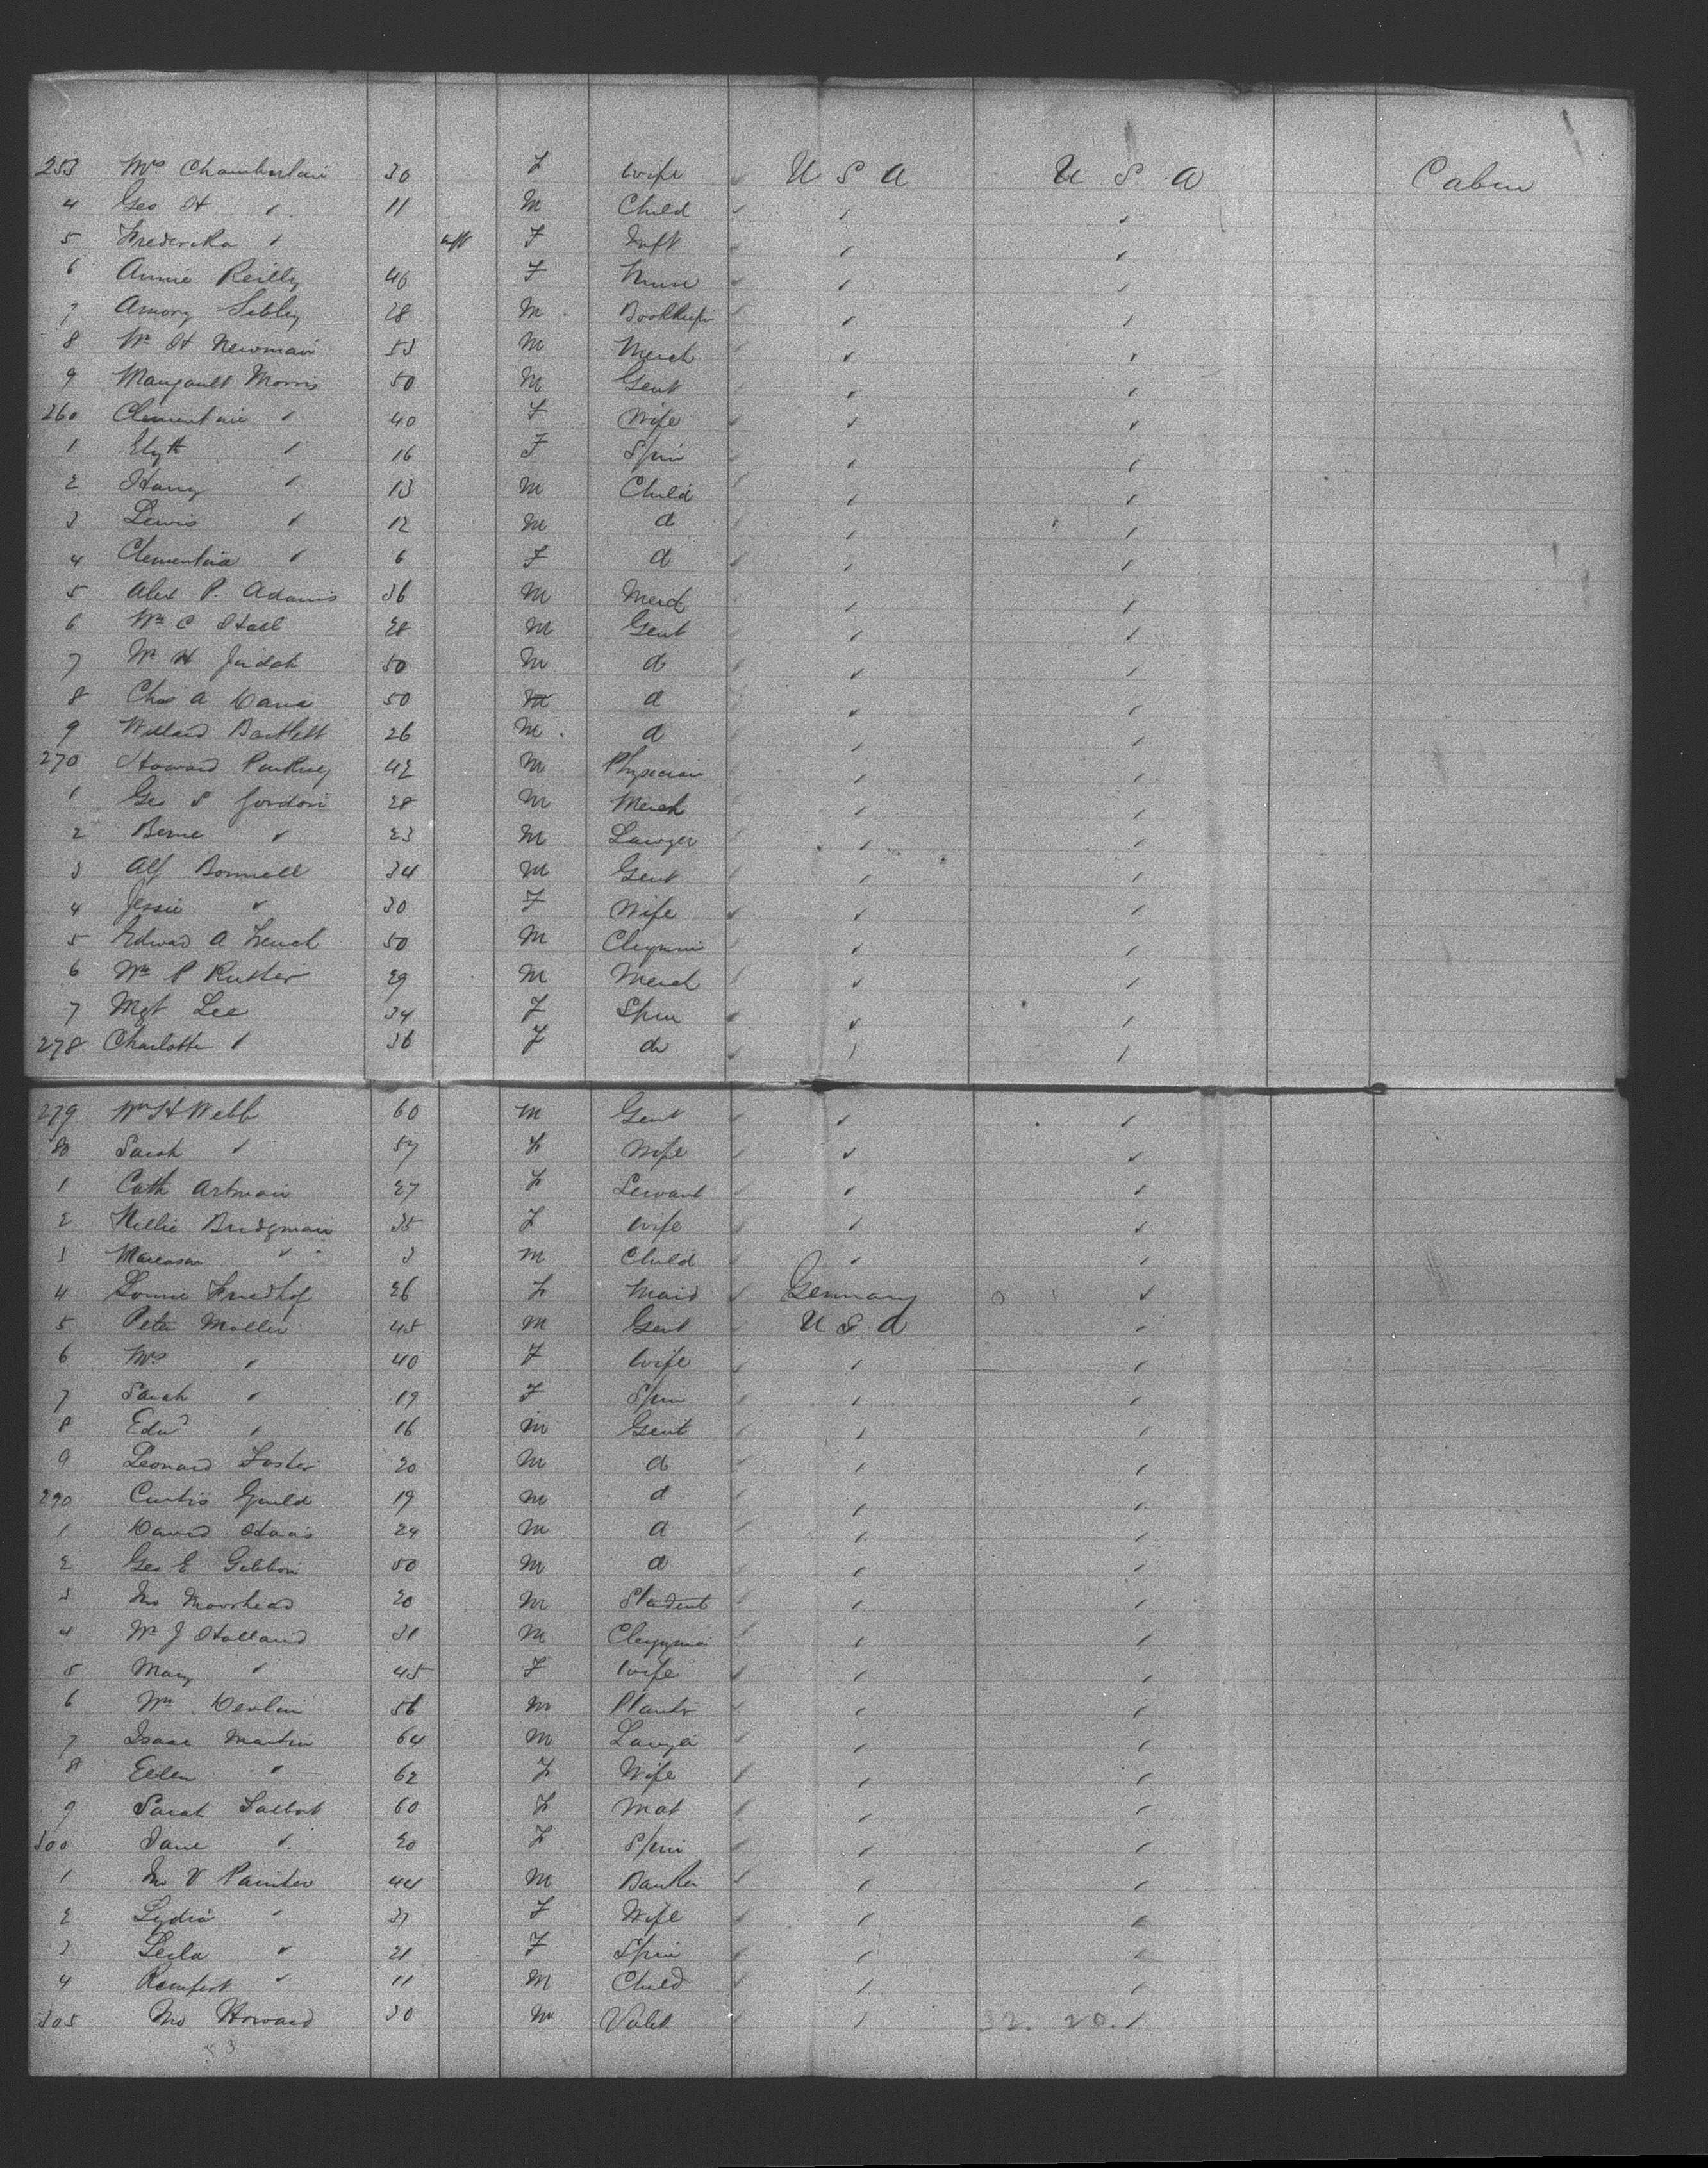 253 Mrs Chamberlain 30 F Wife U S A U S A Cabin
4 Geo H " 11 M Child " "
5 Frederika " inft F Inft " "
6 Annie Reilly 40 F Nurse " "
7 Amory Sibley 28 M Bookkeepr " "
8 Wm H Newman 53 M Merch " "
9 Maugault Morris 50 M Gent " "
260 Clementine " 40 F Wife " "
1 " 16 F Spin " "
2 Harry " 13 M Child " "
3 Lewis " 12 M d " "
4 Clementina " 6 F d " "
5 Alex P. Adams 36 M Merch " "
6 Wm C Hall 28 M Gent " "
7 Wm H Judah 50 M d " "
8 Chas A Dana 50 M d " "
9 Willard Bartlett 26 M d " "
270 Howard Pinkney 42 M Physician " "
1 Geo S Gordon 28 M Merch " "
2 " 23 M Lawyer " "
3 Alf Bonnell 34 M Gent " "
4 Jessie " 30 F Wife " "
5 Edward A 50 M Clergymn " "
6 Wm P Rutter 29 M Merch " "
7 Mgt Lee 34 F Spin " "
278 Charlotte " 36 F do " "
279 Wm H Webb 60 M Gent " "
80 Sarah " 57 F Wife " "
1 Cath Artman 27 F Servant " "
2 Nellie Bridgman 35 F Wife " "
3 " 3 M Child " "
4 Friedhof 26 F Maid Germany "
5 Peter Moller 45 M Gent U S A "
6 Mrs " 40 F Wife " "
7 Sarah " 19 F Spin " "
8 Edwd " 16 M Gent " "
9 Leonard Foster 20 M d " "
290 Curtis Guild 19 M d " "
1 David Haas 24 M d " "
2 Geo E Gibbon 50 M d " "
3 Jno Moorhead 20 M Student " "
4 Wm J Holland 31 M Clergyman " "
5 Mary " 45 F Wife " "
6 Wm Devlin 56 M Plantr " "
7 Isaac Martin 64 M Lawyer " "
8 Ellen " 62 F Wife " "
9 Sarah Talbot 60 F Mat " "
300 Jane " 20 F Spin " "
1 Jno V Painter 44 M Banker " "
2 Lydia " 37 F Wife " "
3 Leila " 21 F Spin " "
4 " 11 M Child " "
305 Jno Howard 30 M Valet " 32. 20. "
53